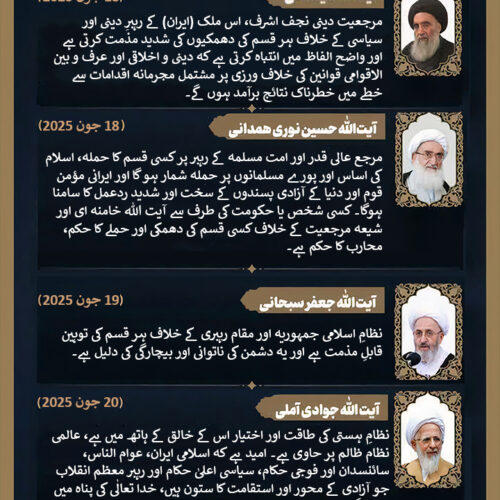 مرجعیت دینی نجف اشرف، اس ملک (ایران) کے رہبر دینی اور
سیاسی کے خلاف ہر قسم کی دھمکیوں کی شدید مذمت کرتی ہے
اور واضح الفاظ میں انتباہ کرتی ہے کہ دینی و اخلاقی اور عرف و بین
الاقوامی قوانین کی خلاف ورزی پر مشتمل مجرمانہ اقدامات سے
خطے میں خطرناک نتائج برآمد ہوں گے۔
آیت‌الله حسین نوری همدانی
(18 جون 2025)
مرجع عالی قدر اور امت مسلمہ کے رہبر پر کسی قسم کا حملہ، اسلام
کی اساس اور پورے مسلمانوں پر حملہ شمار ہو گا اور ایرانی مؤمن
قوم اور دنیا کے آزادی پسندوں کے سخت اور شدید ردعمل کا سامنا
ہوگا۔ کسی شخص یا حکومت کی طرف سے آیت اللہ خامنہ ای اور
شیعہ مرجعیت کے خلاف کسی قسم کی دھمکی اور حملے کا حکم،
محارب کا حکم ہے۔
آیت‌الله جعفر سبحانی
(19 جون 2025)
نظام اسلامی جمہوریہ اور مقام رہبری کے خلاف ہر قسم کی توہین
قابلِ مذمت ہے اور یہ دشمن کی ناتوانی اور بیچارگی کی دلیل ہے۔
آیت‌الله جوادی آملی
(20 جون 2025)
نظامِ ہستی کی طاقت اور اختیار اس کے خالق کے ہاتھ میں ہے، عالمی
نظام ظالم پر حاوی ہے۔ امید ہے کہ اسلامی ایران، عوام الناس،
سائنسدان اور فوجی حکام، سیاسی اعلیٰ حکام اور رہبر معظم انقلاب
جو آزادی کے محور اور استقامت کا ستون ہیں، خدا تعالٰی کی پناہ میں